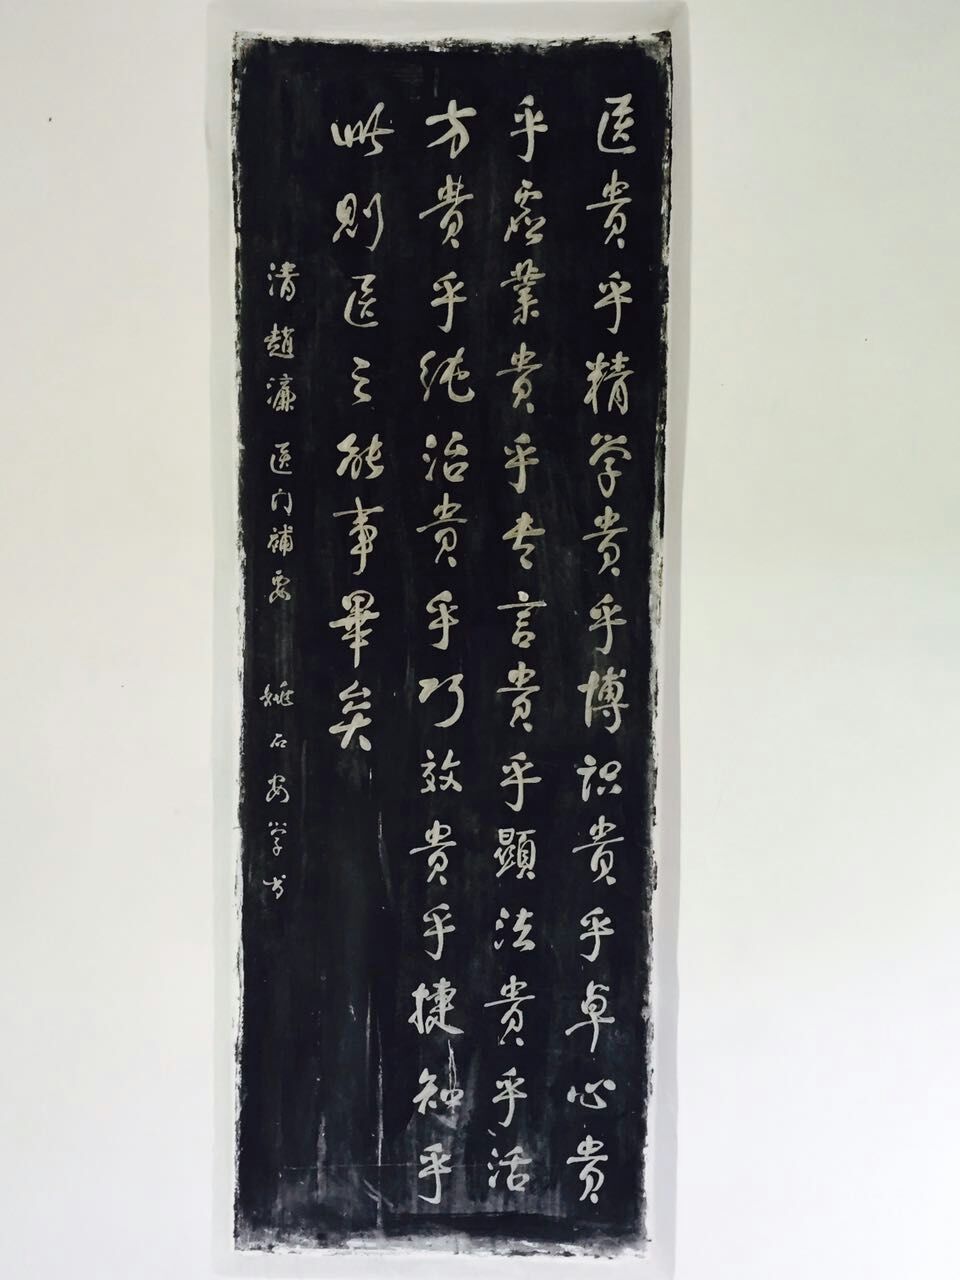 医贵乎精学贵乎博识贵乎卓心贵
乎虚業贵乎专言贵乎顯法贵乎活
方贵乎纯治贵乎巧效贵乎捷知乎
此则医之能事畢矣
清趙濂医门補要 姚石安学书